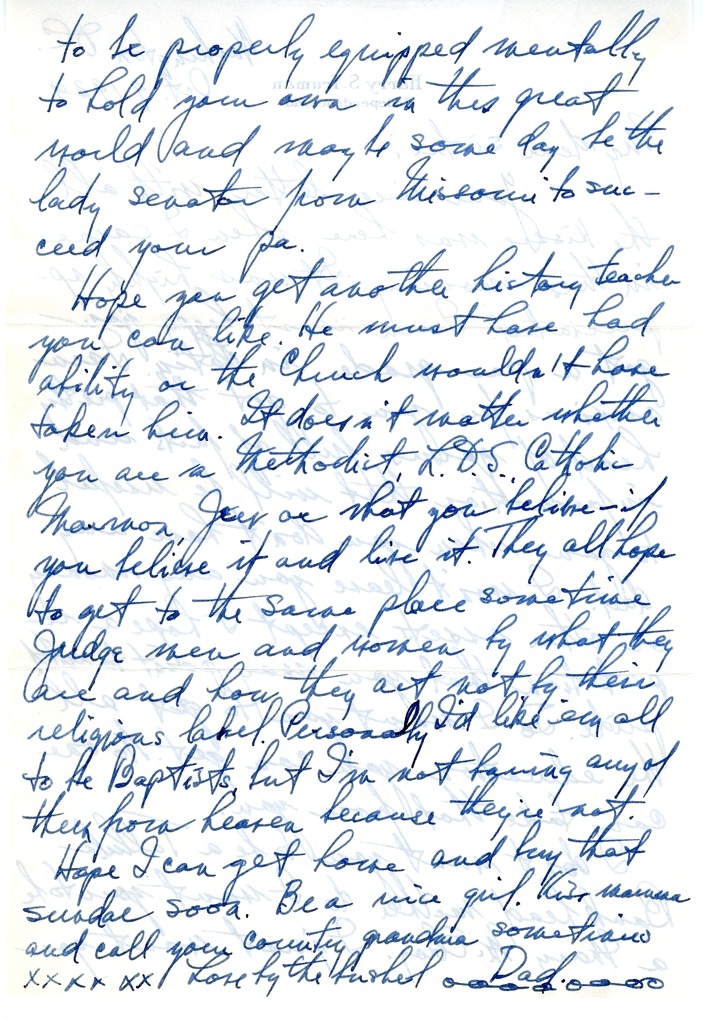 to be properly equipped mentally
to hold your own in this great
world and maybe some day be the
lady senator from Missouri to suc-
ceed your pa.
Hope you get another history teacher
you can like. He must have had
ability or the Church wouldn't have
taken him. It doesn't matter whether
you are a Methodist, L.D.S., Catholic
Mormon, Jew or what you believe - if
you believe it and live it. They all hope
to get to the same place sometime
Judge men and women by what they
are and how they act not by their
religious label. Personally I'd like 'em all
to be Baptists, but I'm not baring any of
them from heaven because they're not.
Hope I can get home and buy that
sundae soon. Be a nice girl. Kiss mamma
and call your country grandma sometimes
xxxx xx Love by the bushel Dad. oooooooo